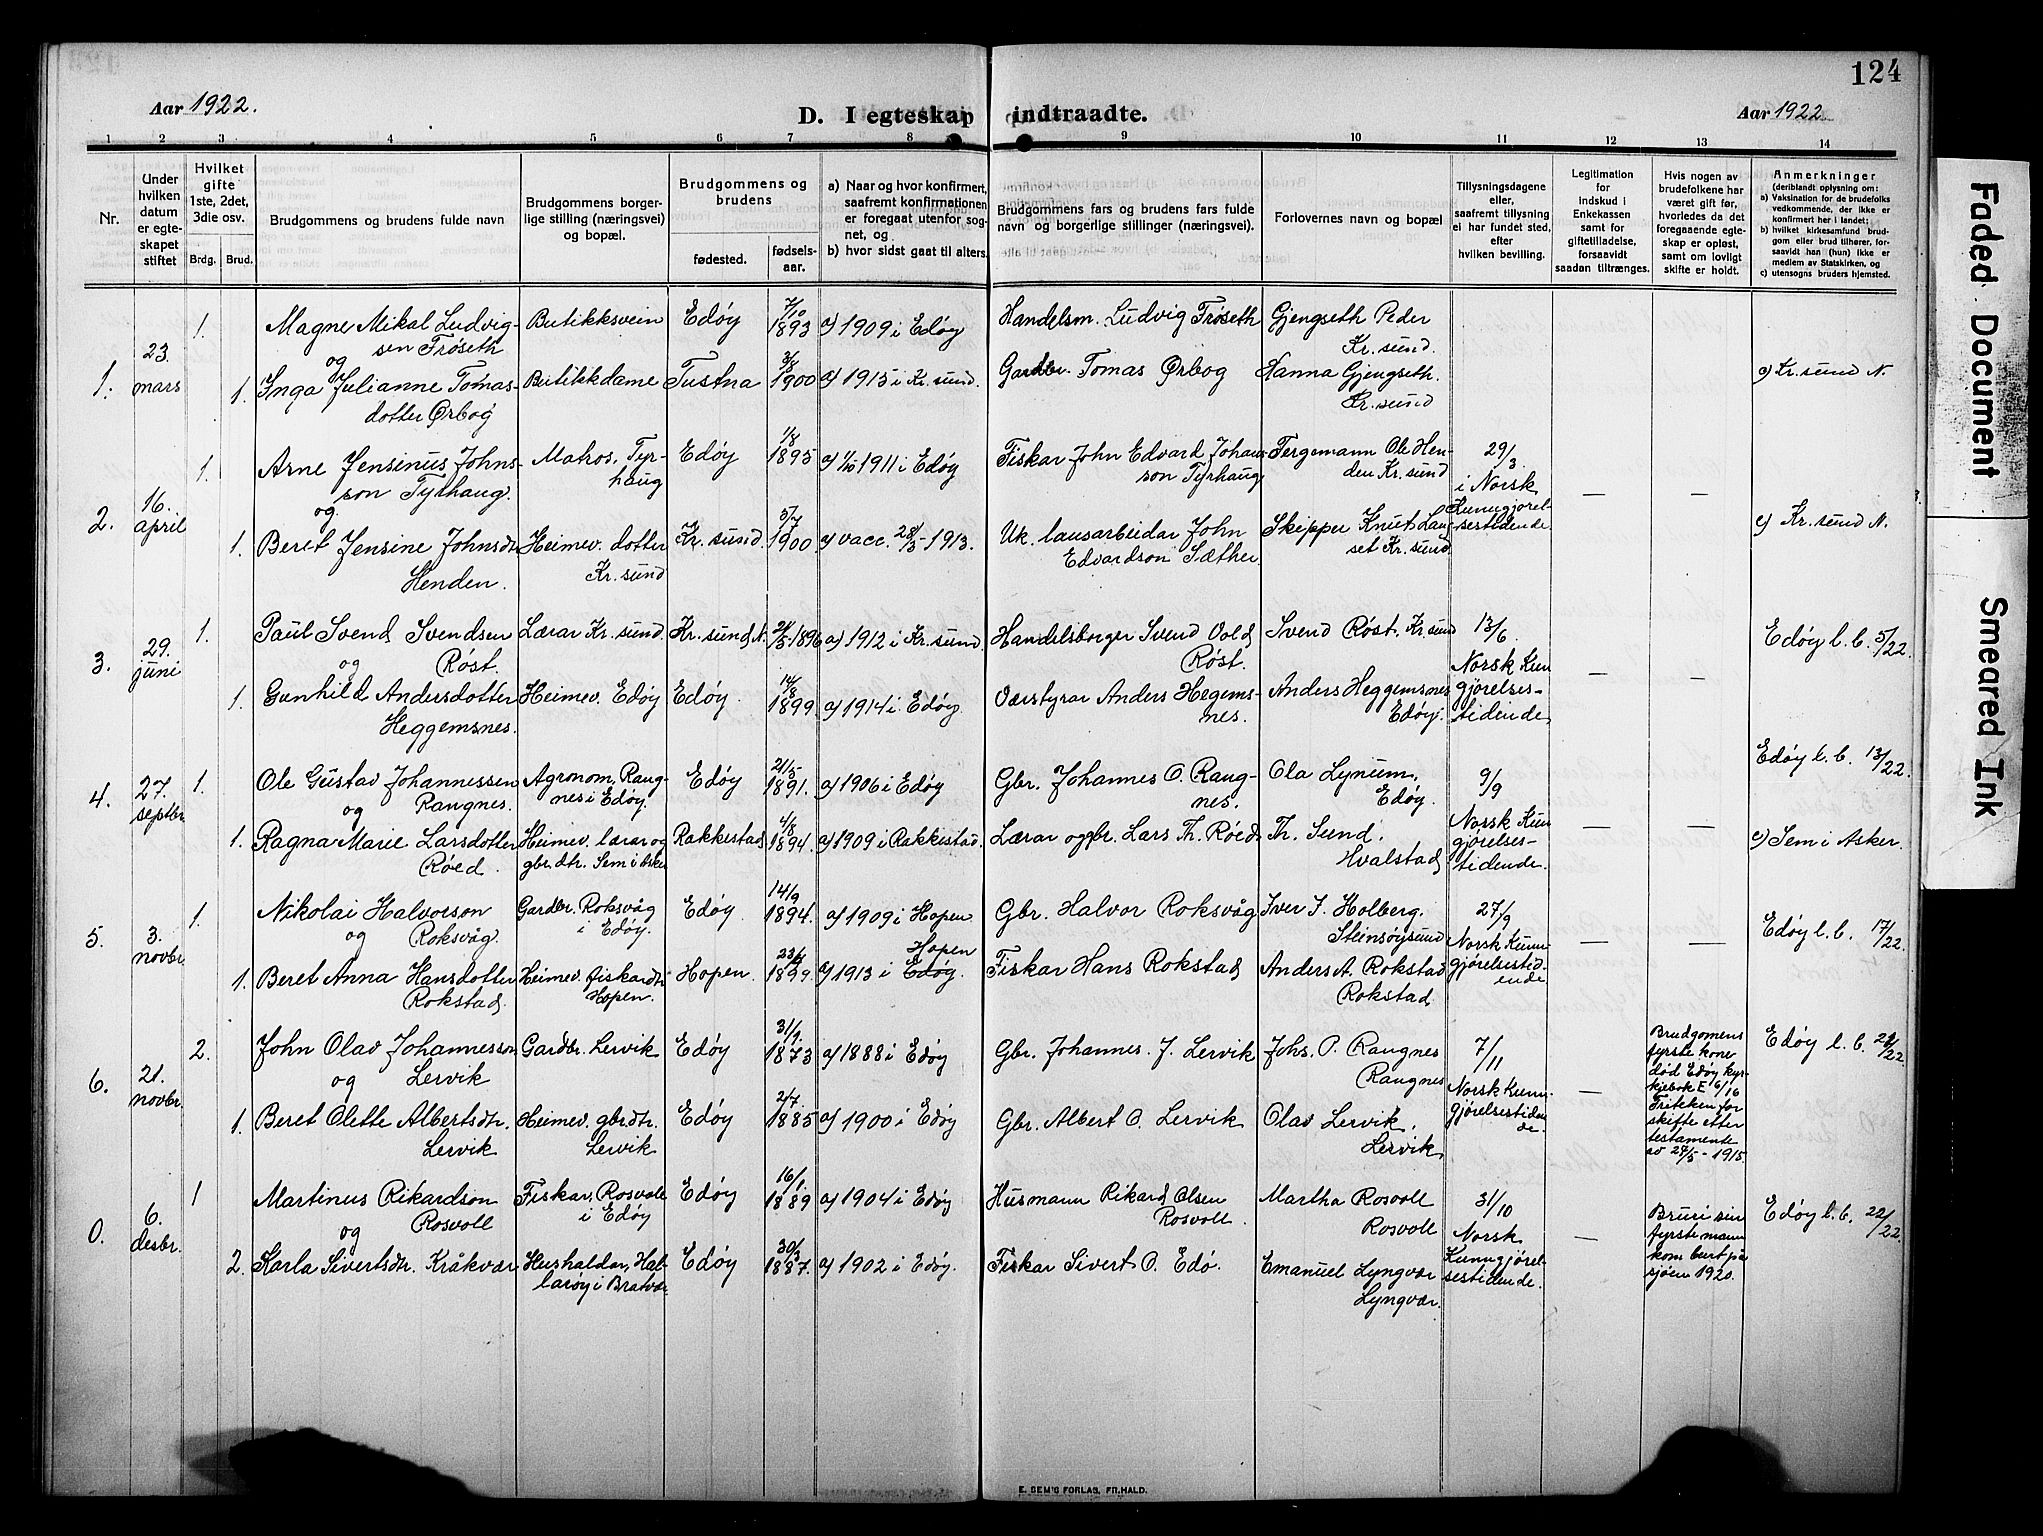 124
Aar 1922.
D. I egteskap indtraadte.
Aar 1922
1 2 3 4 5 6 7 8 9 10 11 12 13 14
Nr.
Under hvilken datum er egteskapet stiftet
Hvilket gifte 1ste, 2det, 3die osv.
Brdg. Brud.
Brudgommens og brudens fulde navn
Brudgommens borgerlige stilling (næringsvei) og bopæl.
Brudgommens og brudens
fødested.
fødselsaar.
a) Naar og hvor konfirmert, saafremt konfirmationen er foregaat utenfor sognet, og
b) hvor sidst gaat til alters.
Brudgommens fars og brudens fars fulde navn og borgerlige stillinger (næringsvei).
Forlovernes navn og bopæl
Tillysningsdagene eller, saafremt tillysning ei har fundet sted, efter hvilken bevilling.
Legitimation for indskud i Enkekassen samt for giftetilladelse, forsaavidt saadan tiltrænges.
Hvis nogen av brudefolkene har været gift før, hvorledes da det foregaaende egteskap er opløst, samt om lovligt skifte er holdt.
Anmerkninger
(deriblandt oplysning om:
a) Vaksination for de brudefolks vedkommende, der ikke er konfirmert her i landet;
b) hvilket kirkesamfund brudgom eller brud tilhører, forsaavidt han (hun) ikke er medlem av Statskirken, og
c) utensogns bruders hjemsted.
1. 23. mars
1. Magne Mikal Ludvigsen Frøseth
Butikksvein
Edøy
7/10 1893
a) 1909 i Edøy
Handelsm. Ludvig Frøseth
Gjengseth Peder
Kr. sund.
og
1. Inga Julianne Tomasdotter Ørbog
Butikkdame
Tustna
3/8 1900
a) 1915 i Kr. sund.
Gardbr. Tomas Ørbog
Hanna Gjengseth.
Kr. sund
c) Kr. sund N.
2. 16. april
1. Arne Jensinus Johnsson Tyrhaug.
Matros, Tyrhaug
Edøy
1/8 1895
a) 1/10 1911 i Edøy
Fiskar John Edvard Johansson Tyrhaug
Fergemann Ole Henden Kr. sund
29/3 i Norsk Kunngjørelsestidende
—
—
og
1. Beret Jensine Johnsdtr Henden.
Heimev. dotter Kr. sund
Kr. sund
5/7 1900.
a) vacc. 28/5-1913.
Uk. lausarbeidar John Edvardson Sæther
Skipper Knut Lauset Kr. sund
c) Kr. sund N.
3. 29. juni
1. Paul Svend Svendsen Røst.
Lærar Kr. sund.
Kr. sund N.
21/5-1896
a) 1912 i Kr. sund.
Handelsborger Svend Vold Røst.
Svend Røst. Kr. sund
13/6. Norsk Kungjørelsestidende
—
Edøy l. b. 5/22.
og
1. Gunhild Andersdotter Heggemsnes.
Heimev. Edøy
Edøy.
14/8 1899.
a) 1914 i Edøy.
Værstyrar Anders Hegemsnes.
Anders Heggemsnes Edøy.
4. 27. septbr
1. Ole Gustav Johannessen Rangnes.
Agronom, Rangnes i Edøy.
Edøy
21/5 1891.
a) 1906 i Edøy
Gbr. Johannes O. Rangnes.
Ola Lynum, Edøy.
9/9 Norsk Kungjørelsestidende.
—
—
Edøy l. b. 13/22.
og
1. Ragna Marie Larsdotter Røed.
Heimev. lærar og gbr. dtr. Sem i Asker
Rakkestad
4/8 1894.
a) 1909 i Rakkestad.
Lærar og gbr. Lars Th. Røed
Th. Sund. Hvalstad
c) Sem i Asker.
5. 3. novbr.
1. Nikolai Halvorson Roksvåg.
Gardbr. Roksvåg i Edøy.
Edøy.
14/9 1894.
a) 1909 i Hopen
Gbr. Halvor Roksvåg
Iver I. Holberg. Steinsøysund
27/9 Norsk Kunngjørelsestidende
—
—
Edøy l. b. 17/22.
og
1. Beret Anna Hansdotter Rokstad.
Heimev. fiskardtr Hopen.
Hopen.
1899.
a) 1913 i Edøy. Hopen
Fiskar Hans Rokstad
Anders A. Rokstad Rokstad
6. 21. novbr.
2. John Olav Johannesson Lervik
Gardbr. Lervik
Edøy
31/1 1873
a) 1888 i Edøy
Gbr. Johannes. J. Lervik
Johs. P. Rangnes Rangnes
7/11 Norsk Kunngjørelsestidende.
—
Brudgomens fyrste kone død Edøy kyrkjebok E 6/16 Friteken for skifte etter testamente av 27/5-1915.
Edøy l. b. 21/22.
og
1. Beret Olette Albertsdtr. Lervik
Heimev. gbr. dtr. Lervik
Edøy
2/7. 1885
a) 1900 i Edøy
Gbr. Albert O. Lervik
Olav Lervik. Lervik
0. 6. desbr.
1 Martinus Rikardson Rosvoll
Fiskar, Rosvoll i Edøy
Edøy
16/1. 1889
a) 1904 i Edøy
Husmann Rikard Olsen Rosvoll.
Martha Rosvoll Rosvoll
31/10 Norsk Kunngjørelsestidende.
—
Bruri sin fyrste mann kom burt på sjøen 1920.
Edøy l. b. 22/22
og
2. Karla Sivertsdtr. Kråkvær
Hushaldar, Hallarøy i Bratvær
Edøy
30/3 1887.
a) 1902 i Edøy.
Fiskar Sivert O. Edø.
Emanuel Lyngvær Lyngvær.
E. SEM'S FORLAG, FR.HALD.
Faded Document
Smeared Ink